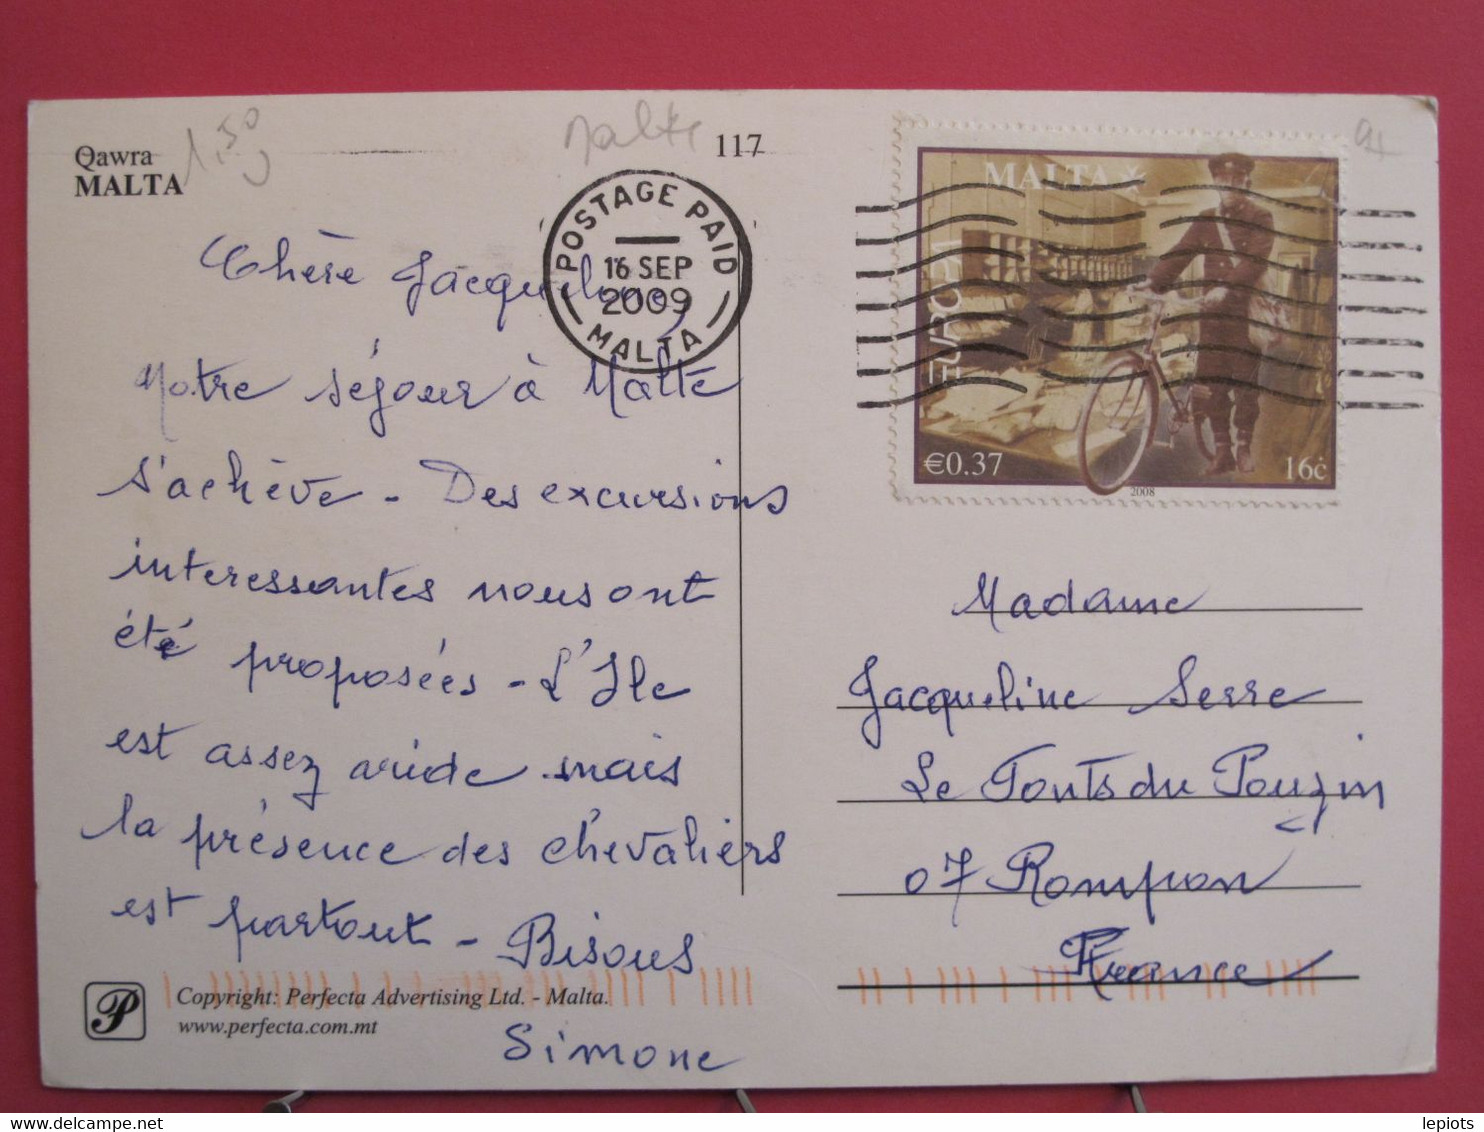 Qawra
MALTA
1,50
Malte
117
Chère Jacqueline,
Notre séjour à Malte
s'achève - Des excursions
interessantes nous ont
été proposées - L'Ile
est assez aride mais
la présence des chevaliers
est partout - Bisous
Simone
Copyright: Perfecta Advertising Ltd. - Malta.
www.perfecta.com.mt
P
POSTAGE PAID
16 SEP
2009
MALTA
MALTA
EUROPA
€0.37
16ċ
2008
Madame
Jacqueline Serre
Le Fonts du Pouzin
07 Rompon
France
delcampe.net
lepiots